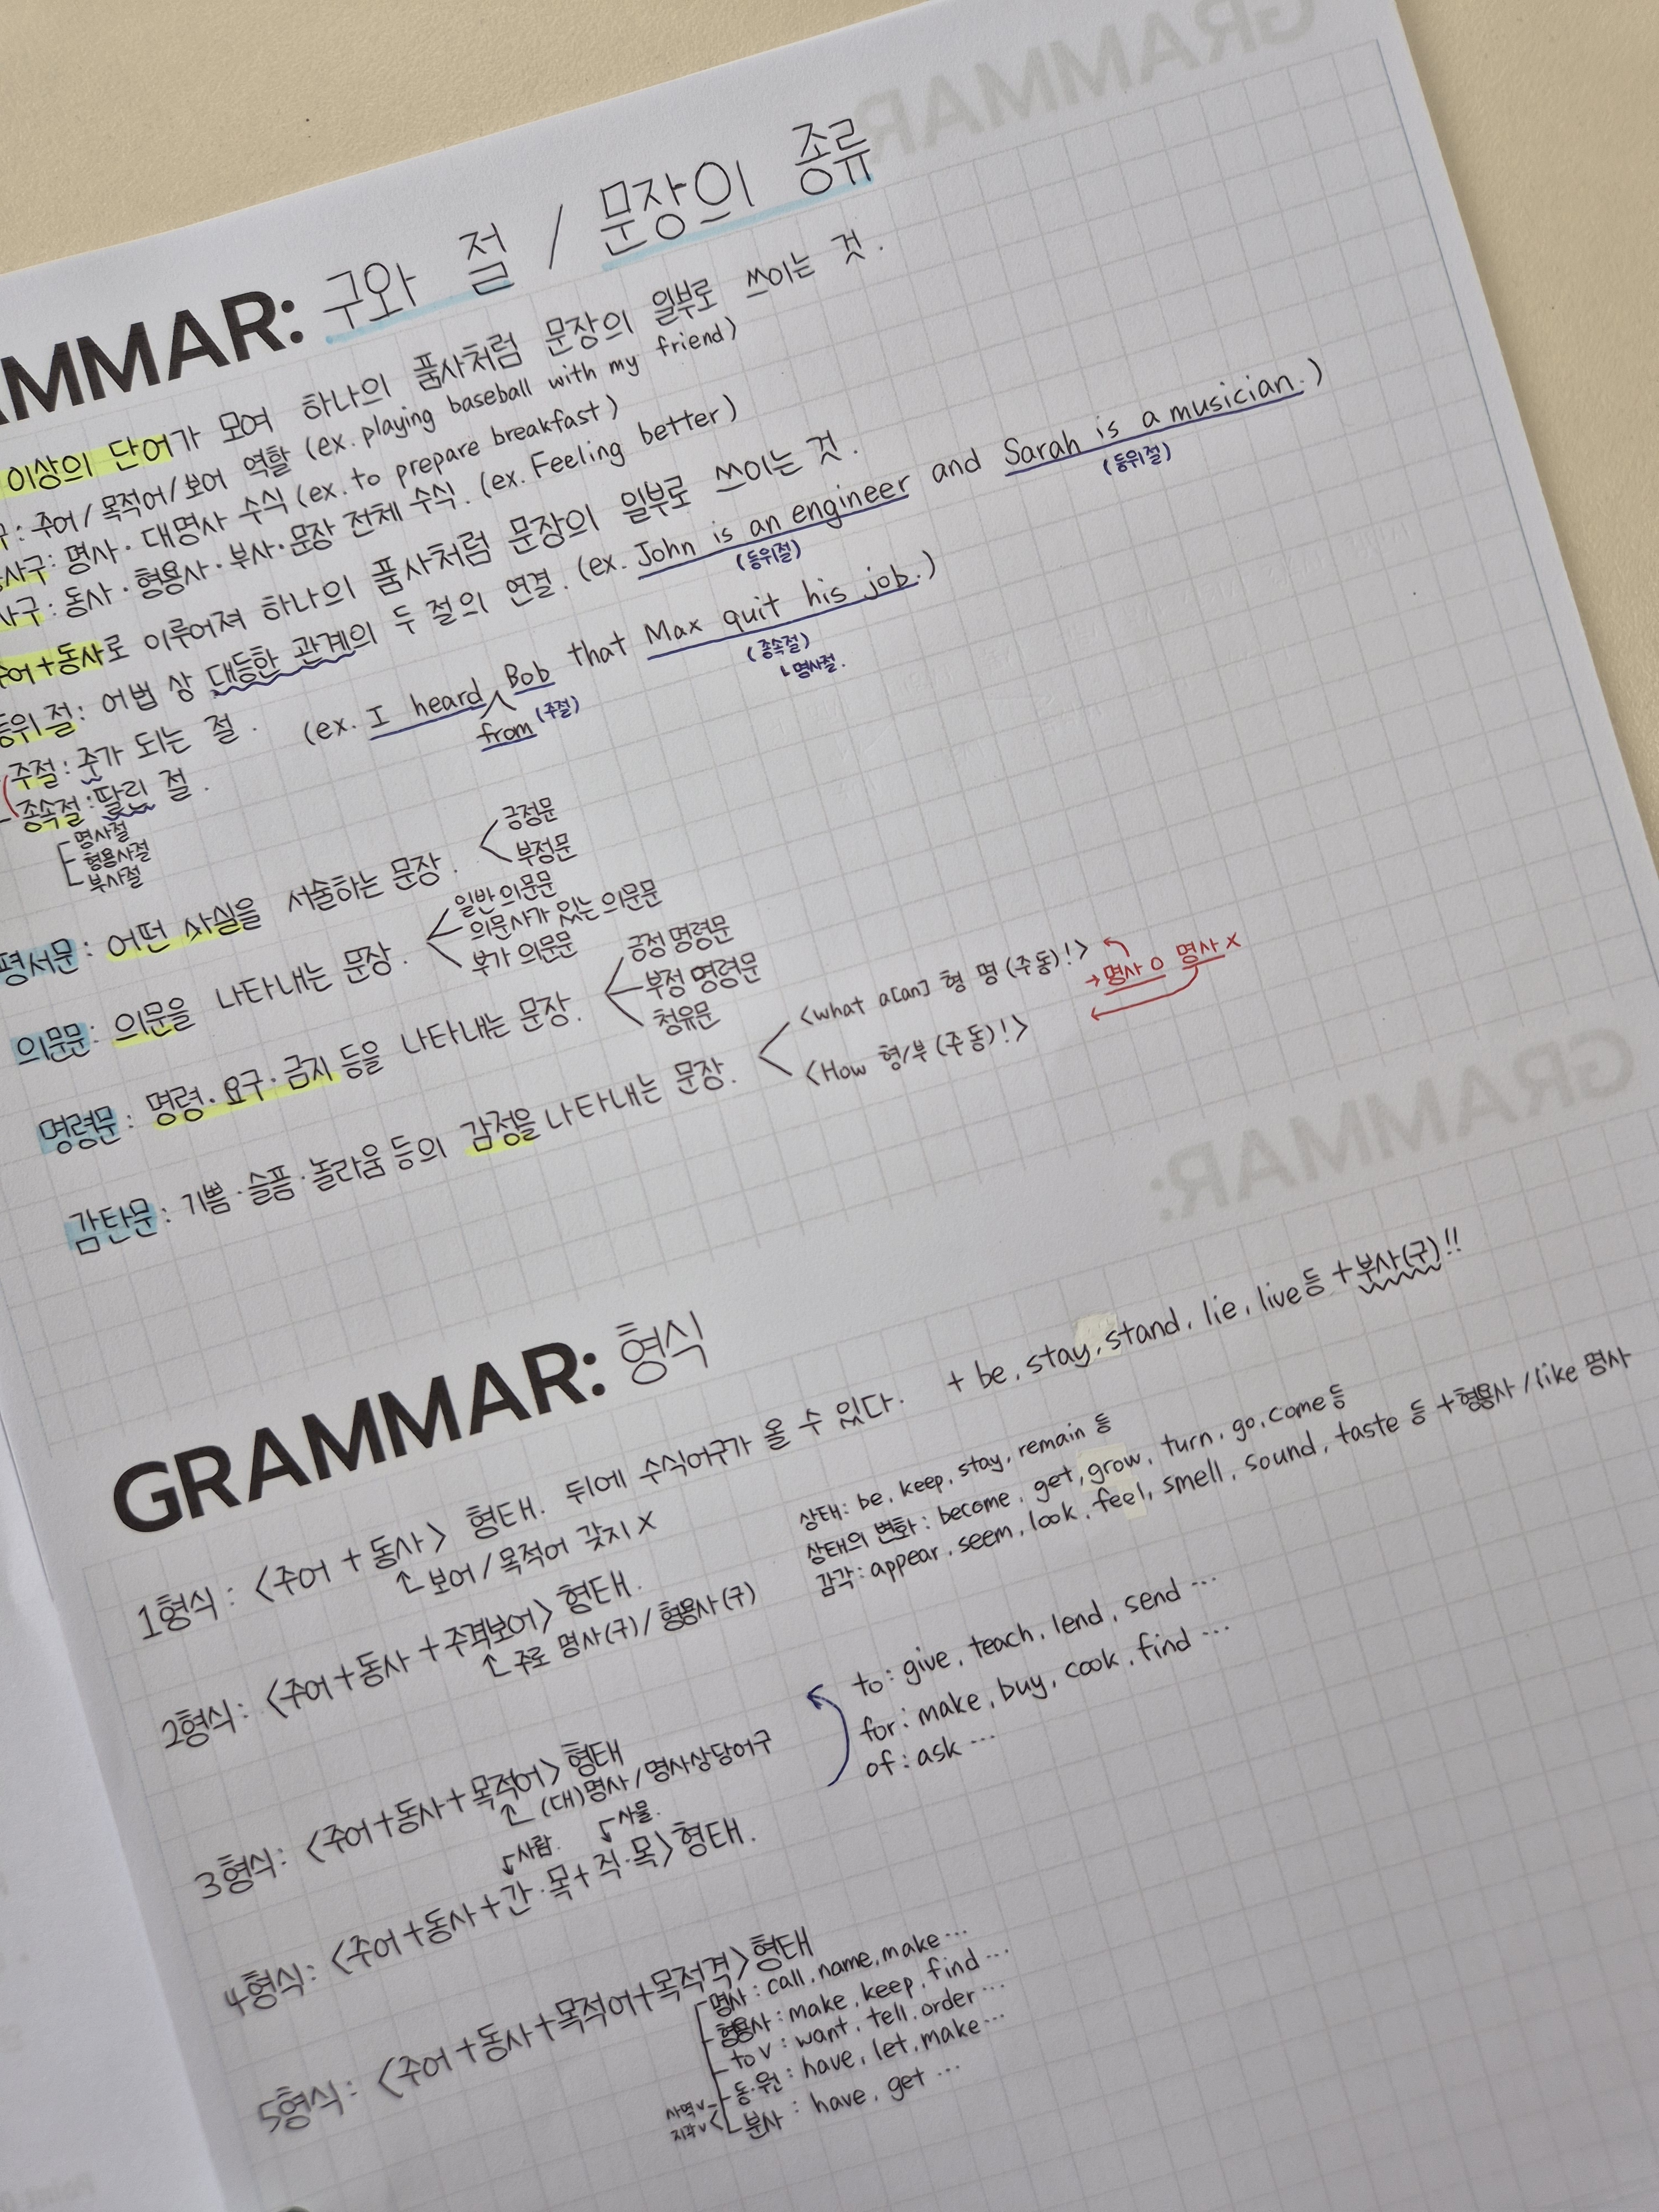 GRAMMAR
AMMAR: 구와 절 / 문장의 종류
이상의 단어가 모여 하나의 품사처럼 문장의 일부로 쓰이는 것.
구: 주어/목적어/보어 역할 (ex. playing baseball with my friend)
사구: 명사·대명사 수식 (ex. to prepare breakfast)
사구: 동사·형용사·부사·문장 전체 수식. (ex. Feeling better)
주어+동사로 이루어져 하나의 품사처럼 문장의 일부로 쓰이는 것.
등위절: 어법 상 대등한 관계의 두 절의 연결. (ex. John is an engineer and Sarah is a musician.)
(등위절) (등위절)
주절: 주가 되는 절. (ex. I heard from Bob that Max quit his job.)
(주절) (종속절)
↳명사절.
종속절: 딸린 절.
명사절
형용사절
부사절
평서문: 어떤 사실을 서술하는 문장.
긍정문
부정문
의문문: 의문을 나타내는 문장.
일반 의문문
의문사가 있는 의문문
부가 의문문
명령문: 명령·요구·금지 등을 나타내는 문장.
긍정 명령문
부정 명령문
청유문
감탄문: 기쁨·슬픔·놀라움 등의 감정을 나타내는 문장.
<what a[an] 형 명 (주동)!> → 명사 O 명사 X
<How 형/부 (주동)!>
GRAMMAR:
GRAMMAR: 형식
1형식: <주어 + 동사> 형태. 뒤에 수식어구가 올 수 있다. + be, stay, stand, lie, live 등 + 부사(구)!!
보어/목적어 갖지 X
2형식: <주어+동사+주격보어> 형태.
주로 명사(구)/형용사(구)
상태: be, keep, stay, remain 등
상태의 변화: become, get, grow, turn, go, come 등
감각: appear, seem, look, feel, smell, sound, taste 등 +형용사/like 명사
3형식: <주어+동사+목적어> 형태
(대)명사/명사상당어구
to: give, teach, lend, send …
for: make, buy, cook, find …
of: ask …
사람. 사물.
4형식: <주어+동사+간·목+직·목> 형태.
5형식: <주어+동사+목적어+목적격> 형태
명사: call, name, make …
형용사: make, keep, find …
to v: want, tell, order …
사역v 동·원: have, let, make …
지각v 분사: have, get …